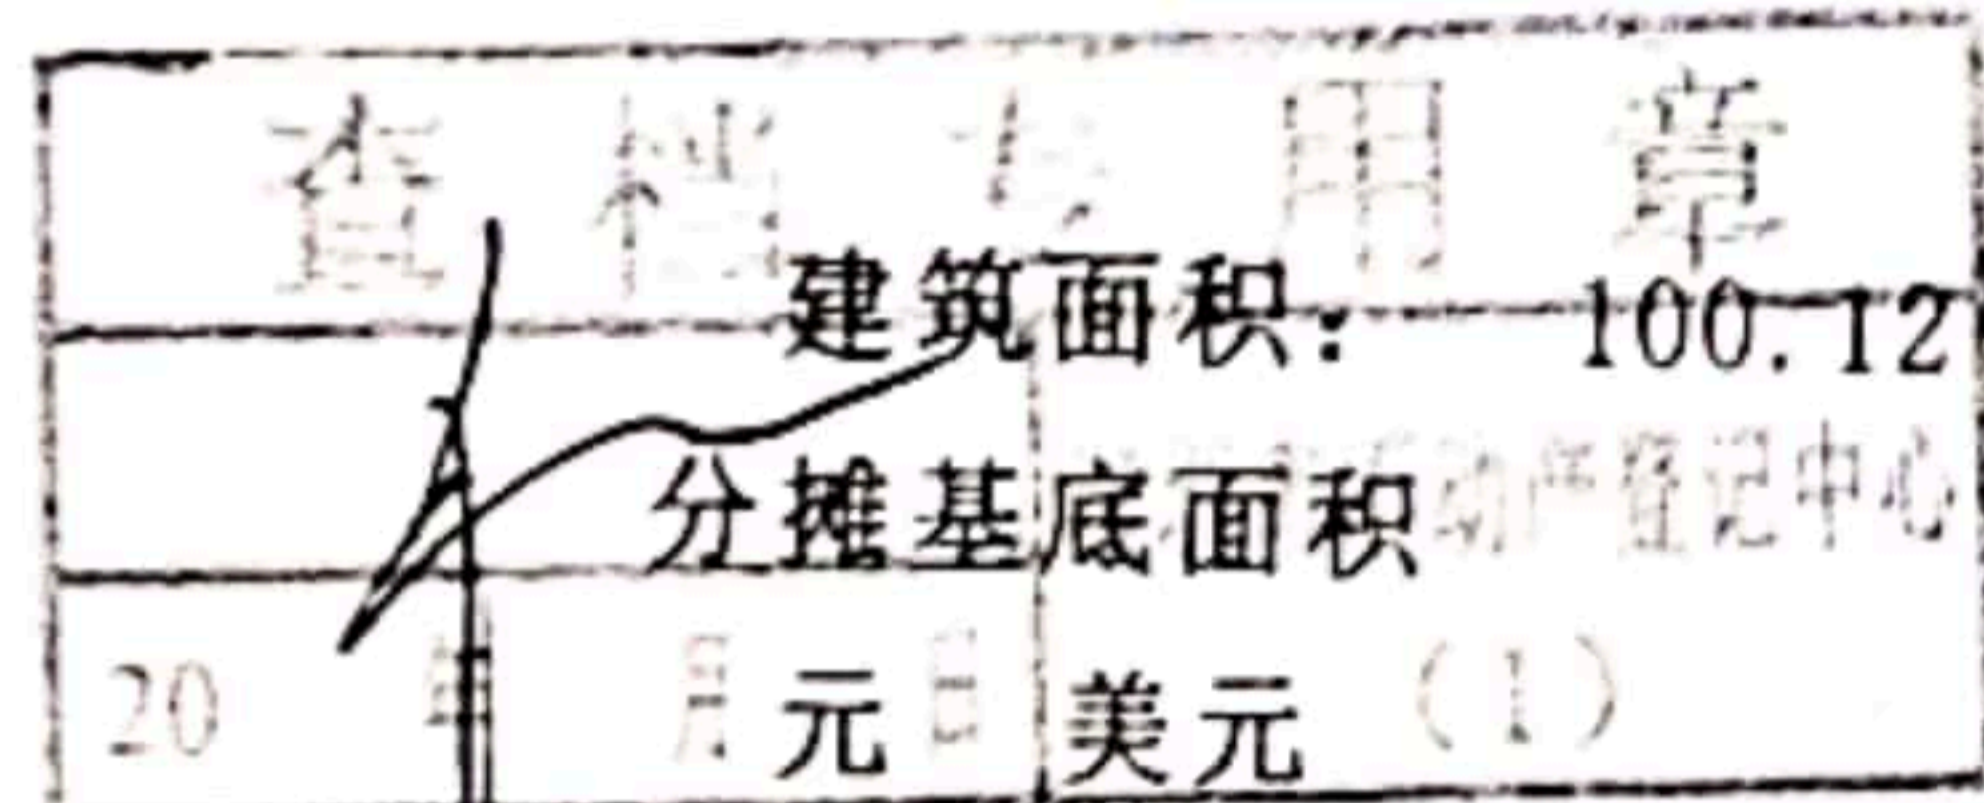 查档专用章
建筑面积: 100.12
分摊基底面积
动产登记中心
20 年 月 日 (1)
元 美元